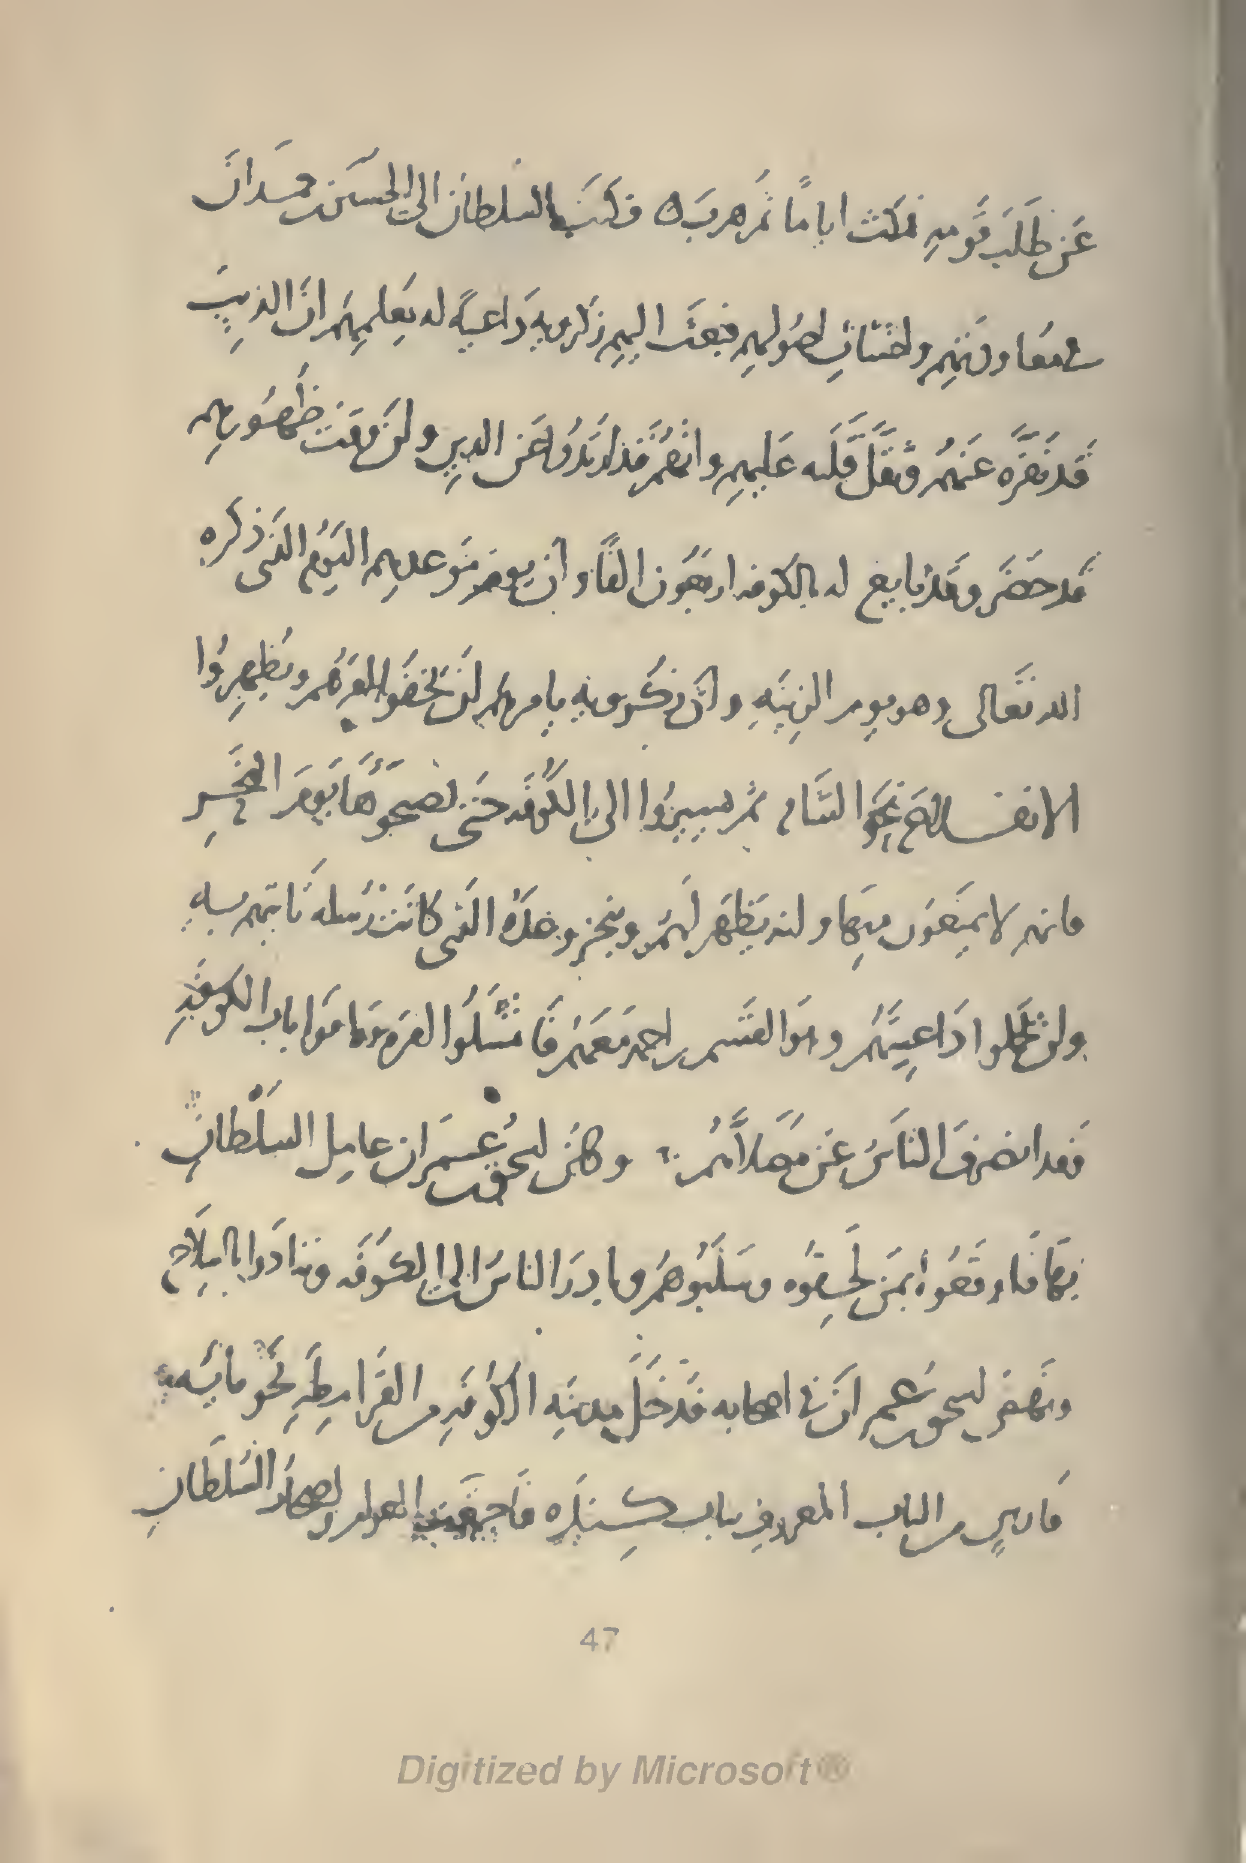 عَن طَلَبِ قَومِهِ فمَكَث اياماً ثُمَّ هربَ فكتَبَ السلطان الى الحُسَين بن حَمدانَ
في مُعَاونَتِهِم واجتثاثِ اصُولِهِم فبَعَثَ اليهِم زكرويهِ دَاعيةً له يَعلمِهُم انَّ الذي
قَد نَفَّرَه عَنهُم وثقَّلَ قَلبَه عَليهِم وانهُم قَد ارتَدُّوا عَن الدينِ وان وقتَ ظُهُورِهِم
قَد حَضَر وقَد بايع له بالكوفه اربعُون الفاً وان يوم مَوعدِهِم اليَوم الذى ذكره
الله تَعَالى وهو يوم الزِينَهِ وانّ زكرويهِ يامرهُم ان يُخفُوا امرَهُم ويُظهِرُوا
نَحوَ الشام ثُم يسِيرُوا الى الكُوفَه حَتى يُصَبحُوهَا يَومَ النَحرِ
فانهم لا يُمنَعون مِنهَا وانه يَظهَر لَهُم وينجز وعدَه الذى كانَت رُسله تَاتِيهم به
وان يحملوا دَاعِيَتَهُم القسم بن احمد مَعَهُم فَامتَثَلُوا امرَه ووافوا باب الكوفَهِ
وَقد انصَرفَ الناسُ عَن مُصَلاهُم وكان اسحق بن عِمرَان عامِل السُلطانِ
بهَا فاوقَعُوا بمَن لَحِقُوه وسَلَبُوهُم وبادَرَ الناسُ الى الكوفَه وتنادَوا بالسِلَاح
ونَهضَ اسحق بن عِمرانَ في اصحابه فدَخَلَ مدينَه الكوُفَهِ من القَرامِطَهِ نَحو مائهِ
فارسٍ من الباب المعروفِ بباب كِندَه فاجتمَعَت العوام واصحابُ السُلطانِ
47
Digitized by Microsoft®